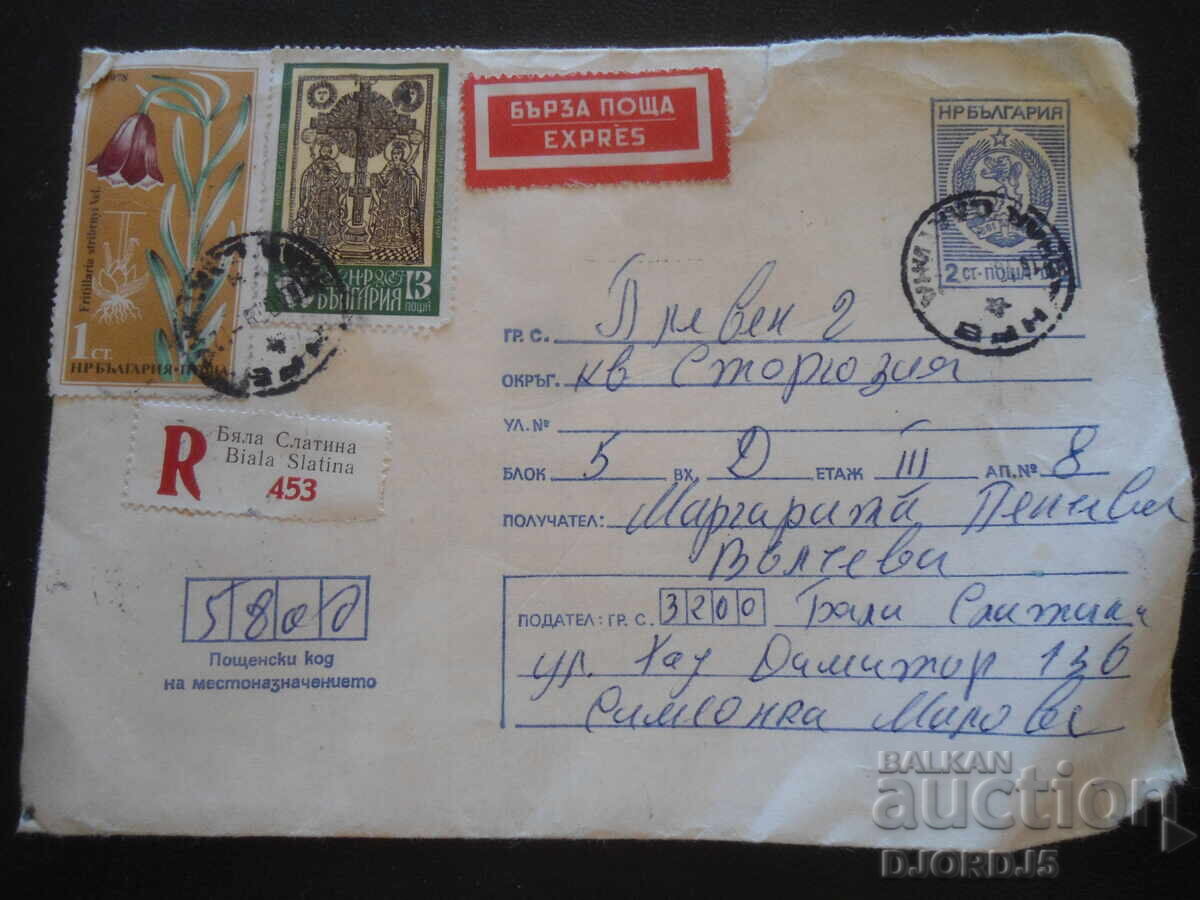 1978
Fritillaria stribrnyi Vel.
1 СТ.
НР БЪЛГАРИЯ • ПОЩА
НР
БЪЛГАРИЯ
13
ПОЩА
БЪРЗА ПОЩА
EXPRÈS
НР БЪЛГАРИЯ
2 СТ. ПОЩА
R
Бяла Слатина
Biala Slatina
453
ГР. С. Плевен 2
ОКРЪГ. кв Сторгозия
УЛ. №
БЛОК 5 ВХ. Д ЕТАЖ III АП. № 8
ПОЛУЧАТЕЛ: Маргарита
Вълчеви
5800
Пощенски код
на местоназначението
ПОДАТЕЛ: ГР. С. 3200 Бяла Слатина
ул. Хаџ Димитър 136
Симеонка
BALKAN
auction
DJORDJ5